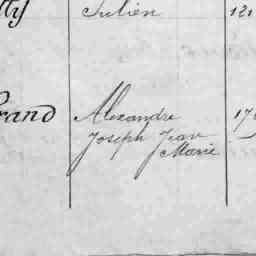 lly Julien 121
rand Alexandre 17
Joseph Jean
Marie